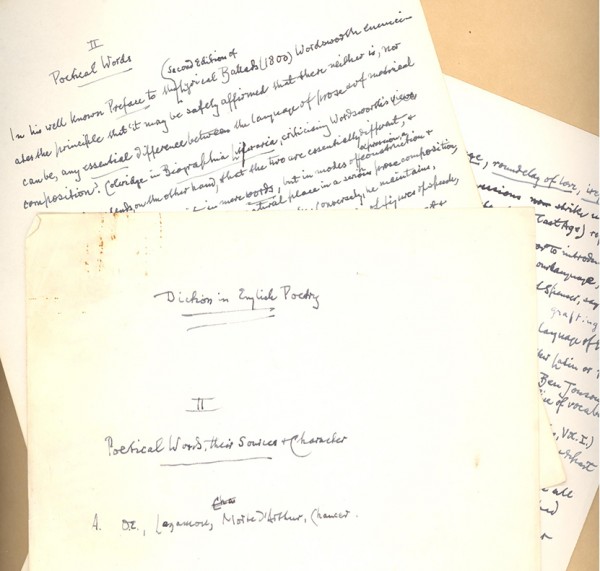 II
Poetical Words
(Second Edition of
In his well known Preface to the Lyrical Ballads (1800) Wordsworth enunci-
ates the principle that "it may be safely affirmed that there neither is, nor
can be, any essential difference between the language of prose and metrical
composition". Coleridge in Biographia Literaria, criticising Wordsworth's views,
on the other hand, that the two are essentially different, &
expression,
in mere words, but in modes of construction &
natural place in a serious prose composition,
Conversely, he maintains,
of figures of speech,
roundelay of love,
now strikes
Last Age)
to introduce
our language,
Spenser, say
grafting
language of
Latin or
Ben Jonson
of vocabu
Vol. I.)
all
Diction in English Poetry
II
Poetical Words, their Sources & Character
Cha
A. O.E., Layamon, Morte D'Arthur, Chaucer.